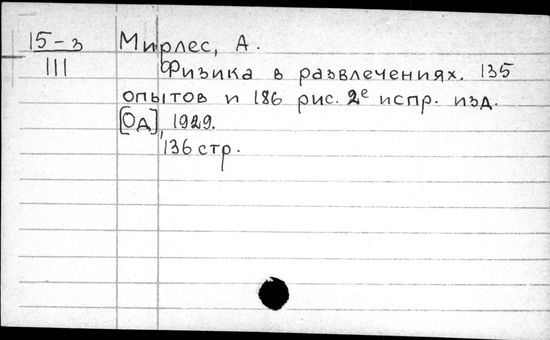 15-3
III
Мирлес, А.
Физика в развлечениях. 135
опытов и 186 рис. 2е испр. изд.
[Од], 1929.
136 стр.